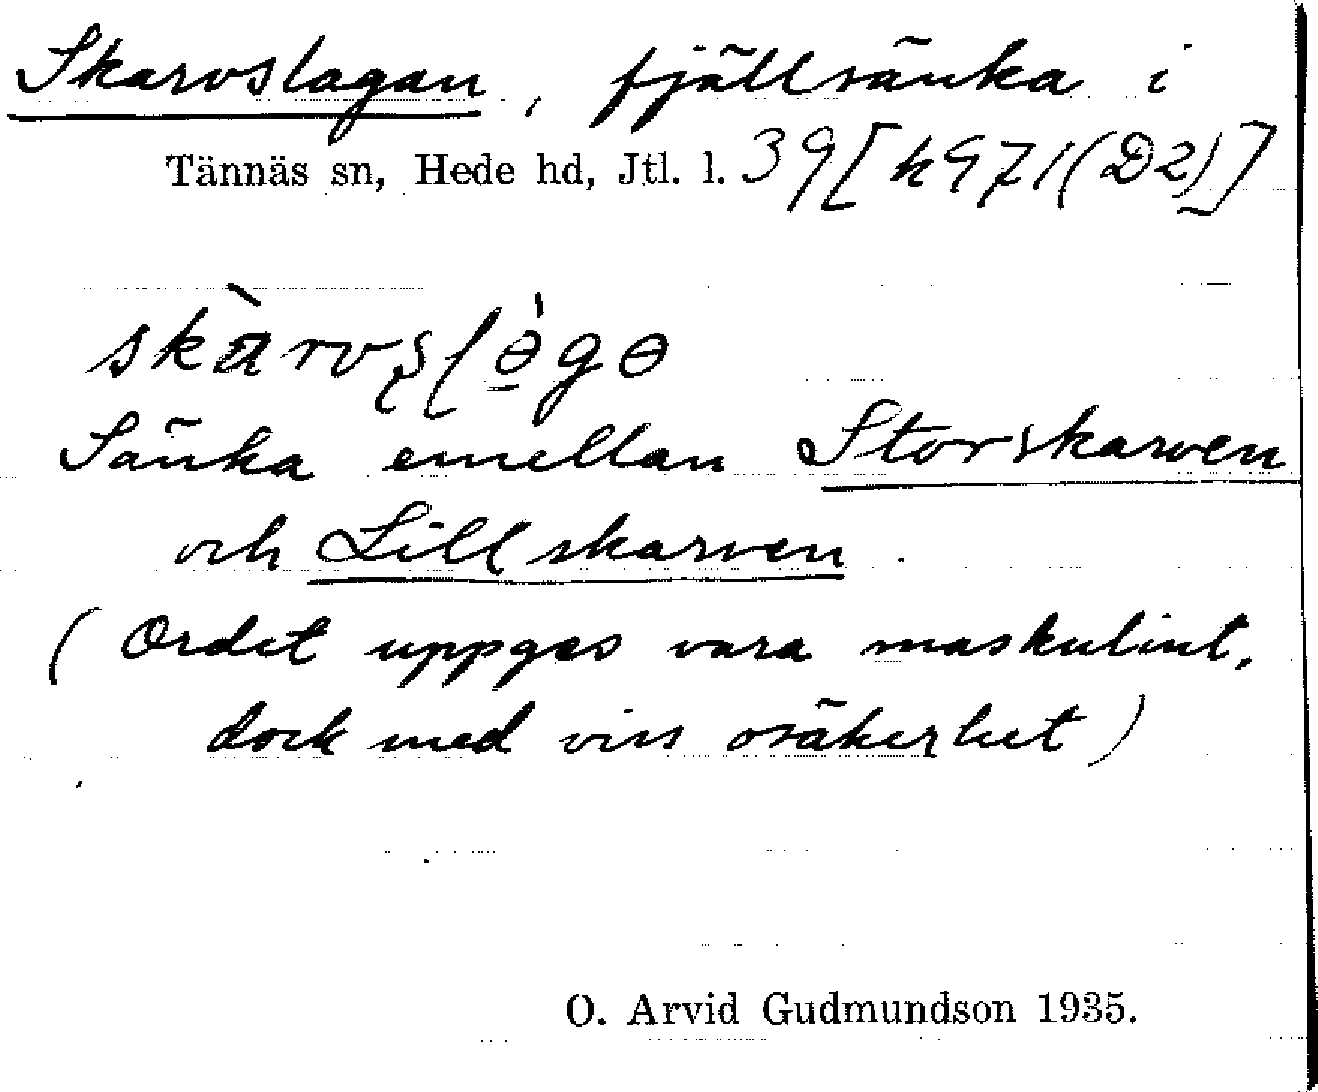 Skarvslagan, fjällsänka i
Tännäs sn, Hede hd, Jtl. l. 39[h971(D2)]
Sänka emellan Storskarven
och Lillskarven.
(Ordet uppges vara maskulint,
dock med viss osäkerhet)
O. Arvid Gudmundson 1935.